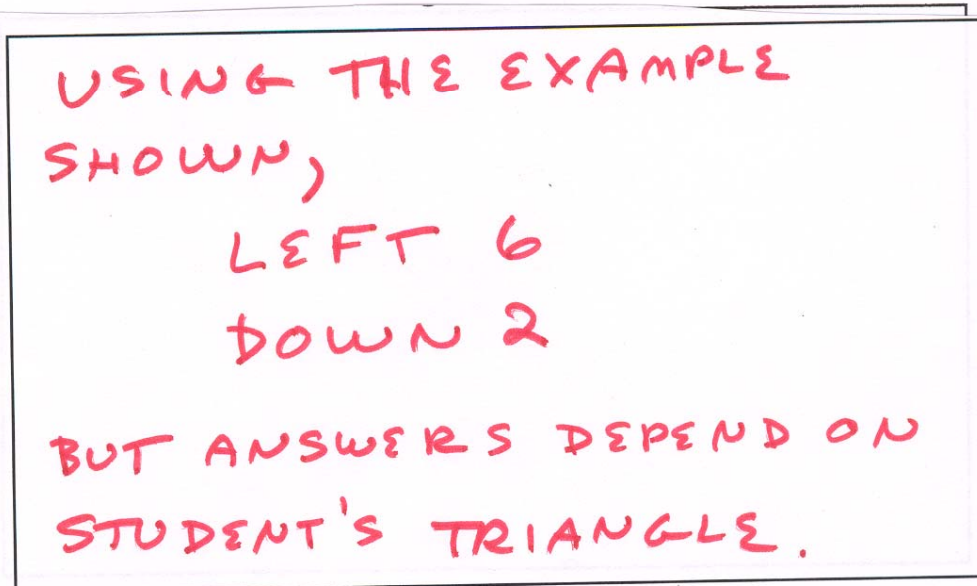 USING THE EXAMPLE
SHOWN,
LEFT 6
DOWN 2
BUT ANSWERS DEPEND ON
STUDENT'S TRIANGLE.